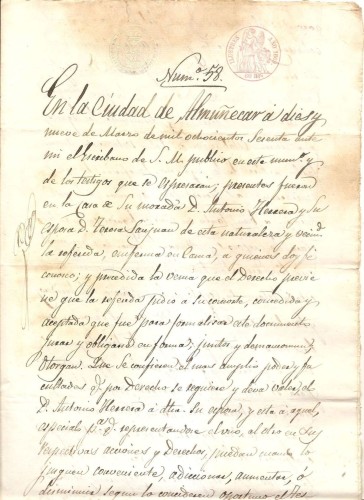 Num.º 58.
En la Ciudad de Almuñecar á dies y
nueve de Marzo de mil ochocientos sesenta ante
mi el Escribano de S. M. publico en este mun.º y
de los testigos que se espresaran; presentes fueron
en la Casa de su morada D. Antonio Herrera y su
esposa D. Teresa Sanjuan de esta naturaleza y vecind.
la referida, enferma en Cama, á quienes doy fé
conozco; y precedida la venia que el Derecho previe
ne que la referida pidió á su consorte, concedida y
aceptada que fue para formalizar este documento
juntos y
Otorgan: Que se confieren el mas amplio poder y fa
cultades q.e por derecho se requiere y deva valer, el
D. Antonio Herrera á dha. su esposa, y esta á aquel,
especial p.a q.e representandose el uno, al otro en sus
respectivas acciones y Derechos, puedan cuando lo
juzguen conveniente, adicionar, aumentar, ó
disminuir segun lo consideren oportuno el tes